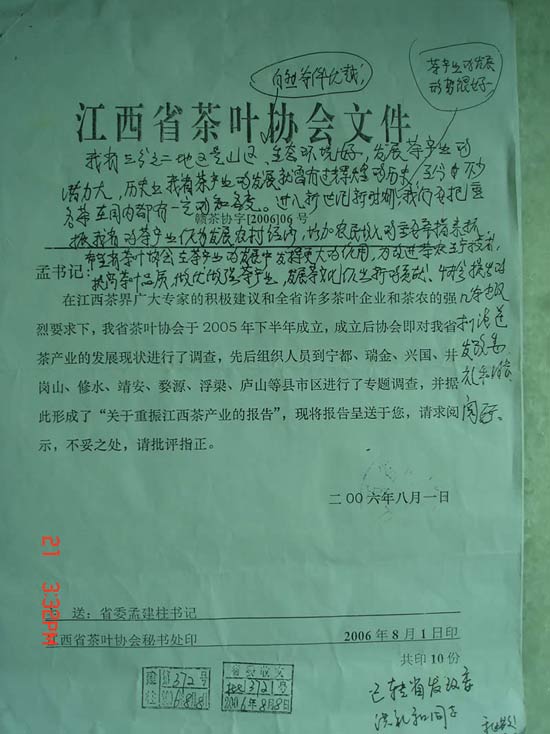 自然条件优越，
茶产业的发展
形势很好
江西省茶叶协会文件
我省三分之二地区是山区、生态环境好，发展茶产业的
潜力大，历史上我省茶产业的发展就曾有过辉煌的历史，至今有不少
名茶在国内都有一定的知名度。进入新世纪新时期，我们要把重
赣茶协字[2006]06号
振我省的茶产业作为发展农村经济，增加农民收入的重要举措来抓
希望省茶协会在茶产业的发展中发挥更大的作用，为改进茶农生产技术，
孟书记：
提高茶叶品质，做优做强茶产业，发展茶文化作出新的贡献！协会提出的
几条建议
在江西茶界广大专家的积极建议和全省许多茶叶企业和茶农的强
烈要求下，我省茶叶协会于2005年下半年成立，成立后协会即对我省
茶产业的发展现状进行了调查，先后组织人员到宁都、瑞金、兴国、井
发改委
冈山、修水、靖安、婺源、浮梁、庐山等县市区进行了专题调查，并据
礼和同志
此形成了“关于重振江西茶产业的报告”，现将报告呈送于您，请求阅
阅研。
示，不妥之处，请批评指正。
二00六年八月一日
21 3:32PM
送：省委孟建柱书记
江西省茶叶协会秘书处印
2006年8月1日印
共印10份
372号
371号
2006年8月8日
已转省发改委
洪礼和同志